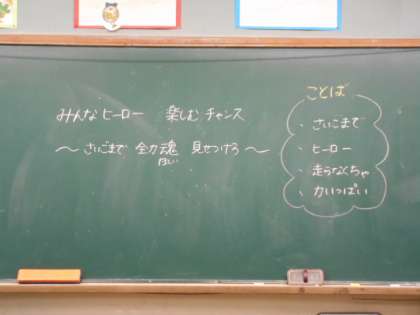 みんなヒーロー 楽しむ チャンス
〜さいごまで 全力魂 見せつけろ〜
ことば
・さいごまで
・ヒーロー
・走らなくちゃ
・力いっぱい